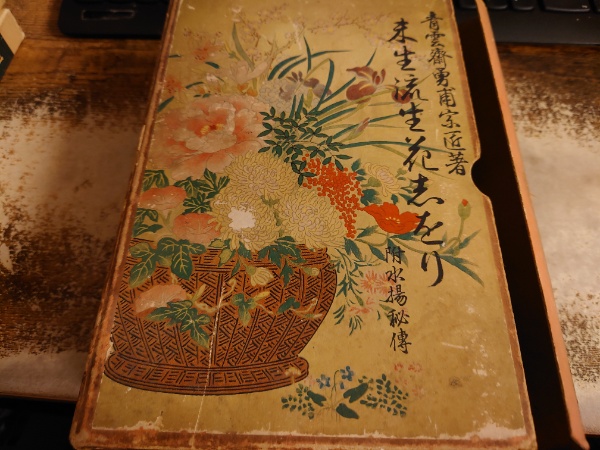 青雲齋勇甫宗匠著
未生流生花志をり
附水揚秘傳